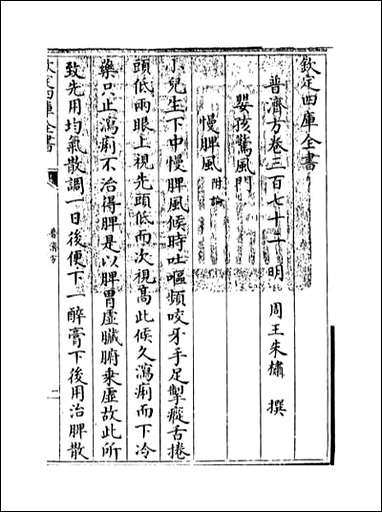 欽定四庫全書
普濟方卷三百七十一 明 周王朱橚 撰
嬰孩驚風門
慢脾風附論
小兒生下中慢脾風候時吐嘔頻咬牙手足掣瘲舌捲
頭低兩眼上視先頭低而次視高此候久瀉痢而下冷
藥只止瀉痢不治得脾是以脾胃虛臟腑乗虛故此所
致先用均氣散調一日後便下一醉膏下後用治脾散
欽定四庫全書
普濟方
一